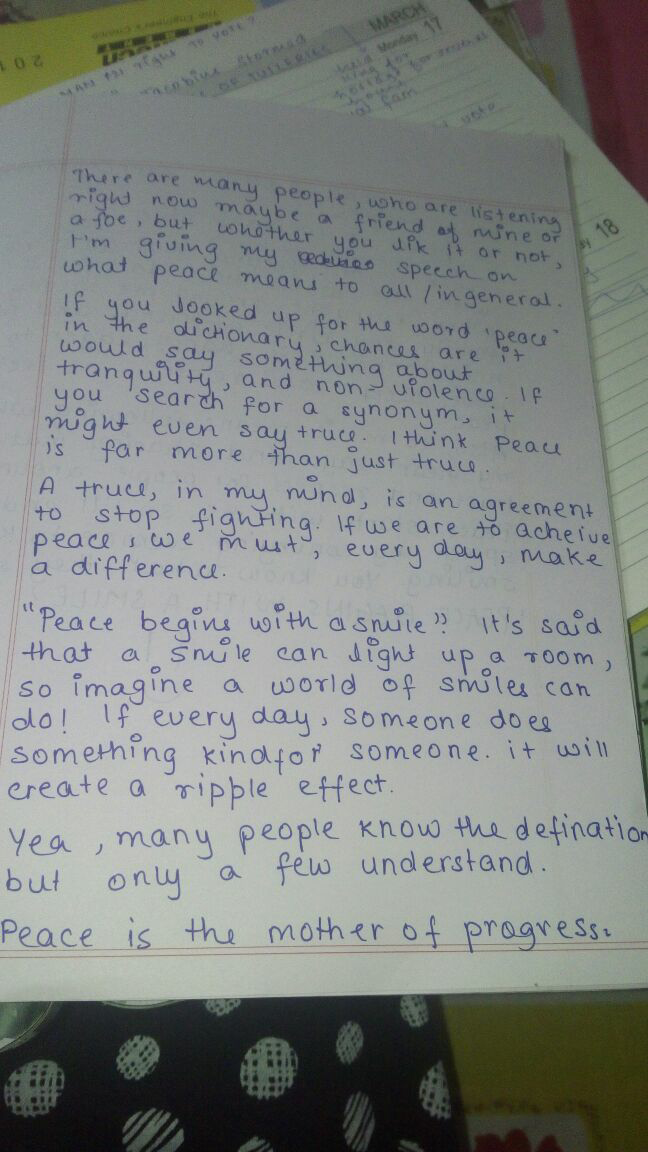 The Engineer's Choice
201
MARCH
Monday 17
MAN AN right to vote ?
Jacobins stormed
OF TUILERIES
held
king for
hou
fam
vote
18
There are many people, who are listening
right now maybe a friend of mine or
a foe, but whether you lik it or not,
I'm giving my speech on
what peace means to all / in general.
If you looked up for the word 'peace'
in the dictionary, chances are it
would say something about
tranquility, and non-violence. If
you search for a synonym, it
might even say truce. I think Peace
is far more than just truce.
A truce, in my mind, is an agreement
to stop fighting. If we are to acheive
peace, we must, every day, make
a difference.
"Peace begins with a smile". It's said
that a smile can light up a room,
so imagine a world of smiles can
do! If every day, someone does
something kind for someone. it will
create a ripple effect.
Yea, many people know the defination
but only a few understand.
Peace is the mother of progress.